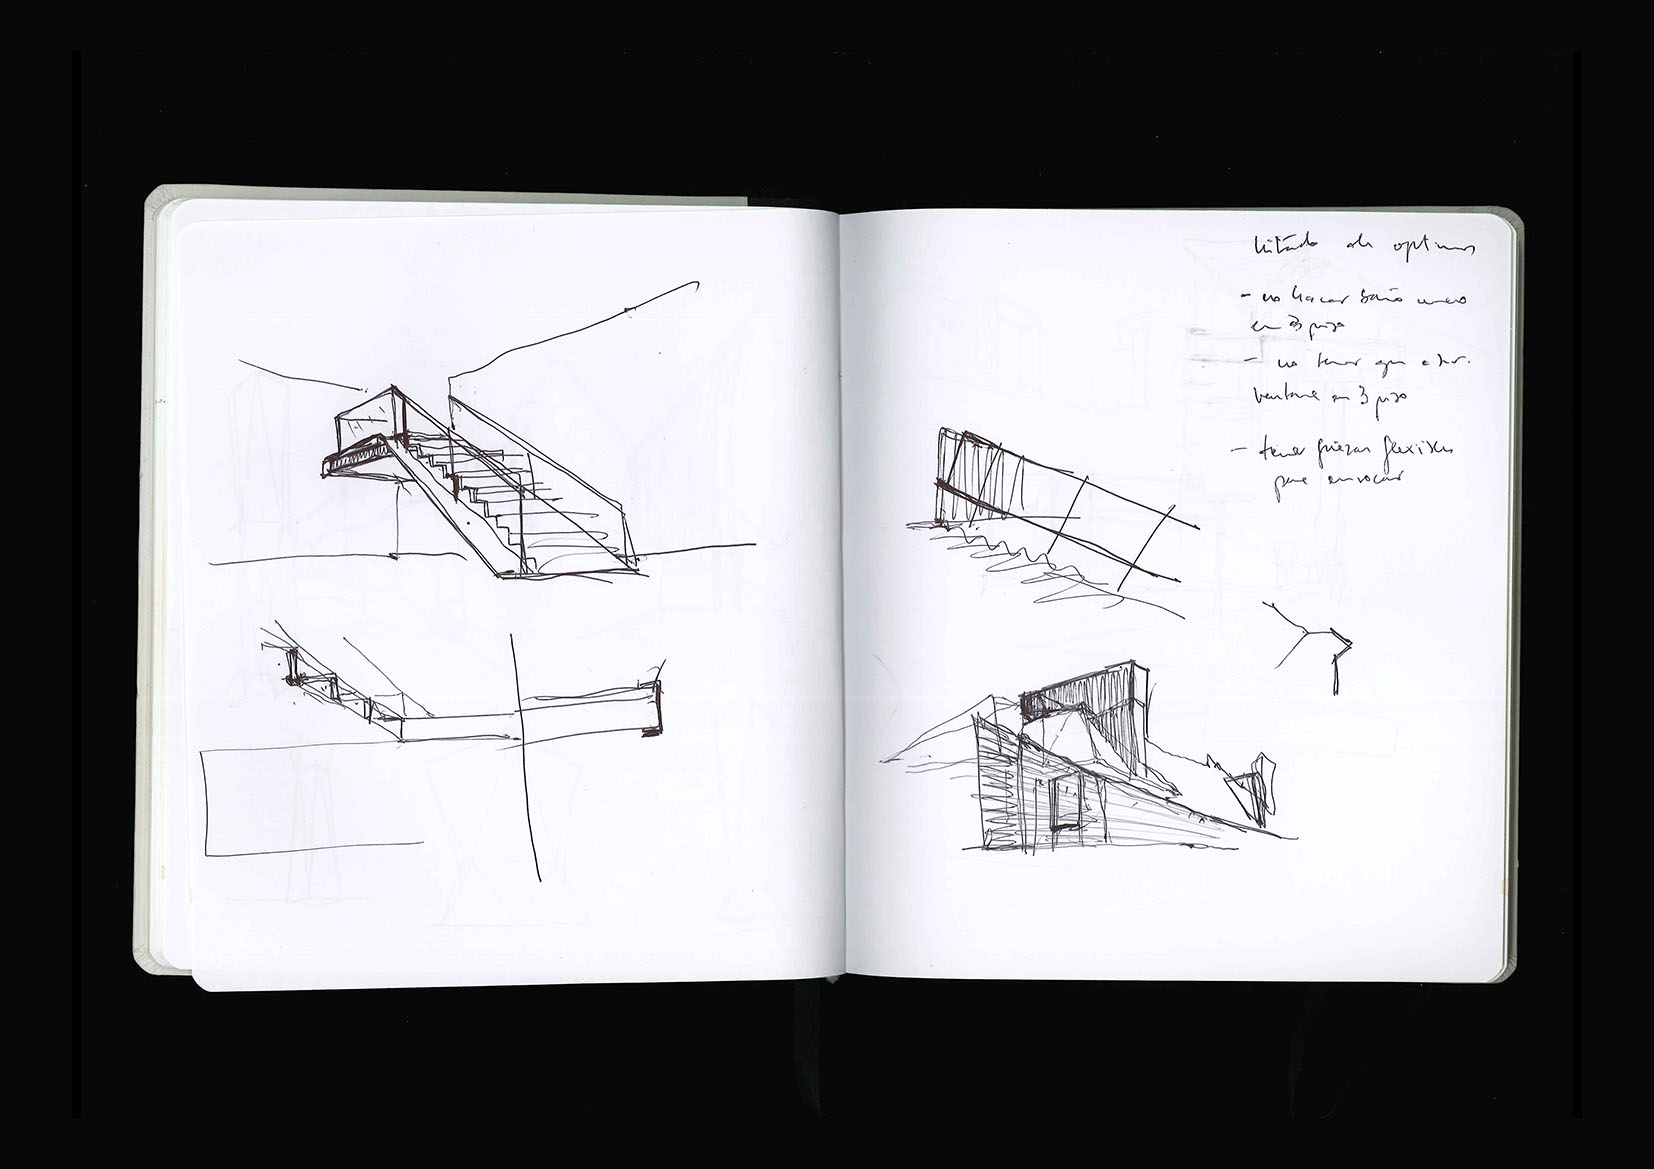 listado de optimos
- no hacer baño nuevo
en 3 piso
- no tener que
ventana en 3 piso
- tener piezas flexibles
para